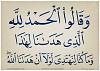 وَقَالُوا الْحَمْدُ لِلَّهِ
الَّذِي هَدَانَا لِهَذَا
وَمَا كُنَّا لِنَهْتَدِيَ لَوْلَا أَنْ هَدَانَا اللَّهُ